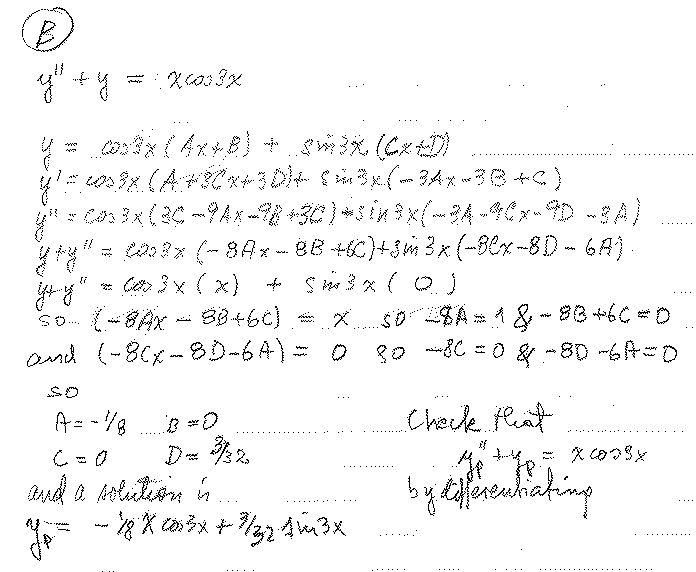 B
y'' + y = x cos3x
y = cos3x (Ax+B) + sin3x (Cx+D)
y' = cos3x (A+3Cx+3D) + sin3x (-3Ax-3B+C)
y'' = cos3x (3C-9Ax-9B+3C) + sin3x (-3A-9Cx-9D-3A)
y+y'' = cos3x (-8Ax-8B+6C) + sin3x (-8Cx-8D-6A)
y+y'' = cos3x (x) + sin3x ( 0 )
so (-8Ax-8B+6C) = x so -8A=1 & -8B+6C=0
and (-8Cx-8D-6A) = 0 so -8C=0 & -8D-6A=0
so
A=-1/8 B=0
C=0 D=3/32
and a solution is
yp = -1/8 x cos3x + 3/32 sin3x
Check that
yp'' + yp = x cos3x
by differentiating